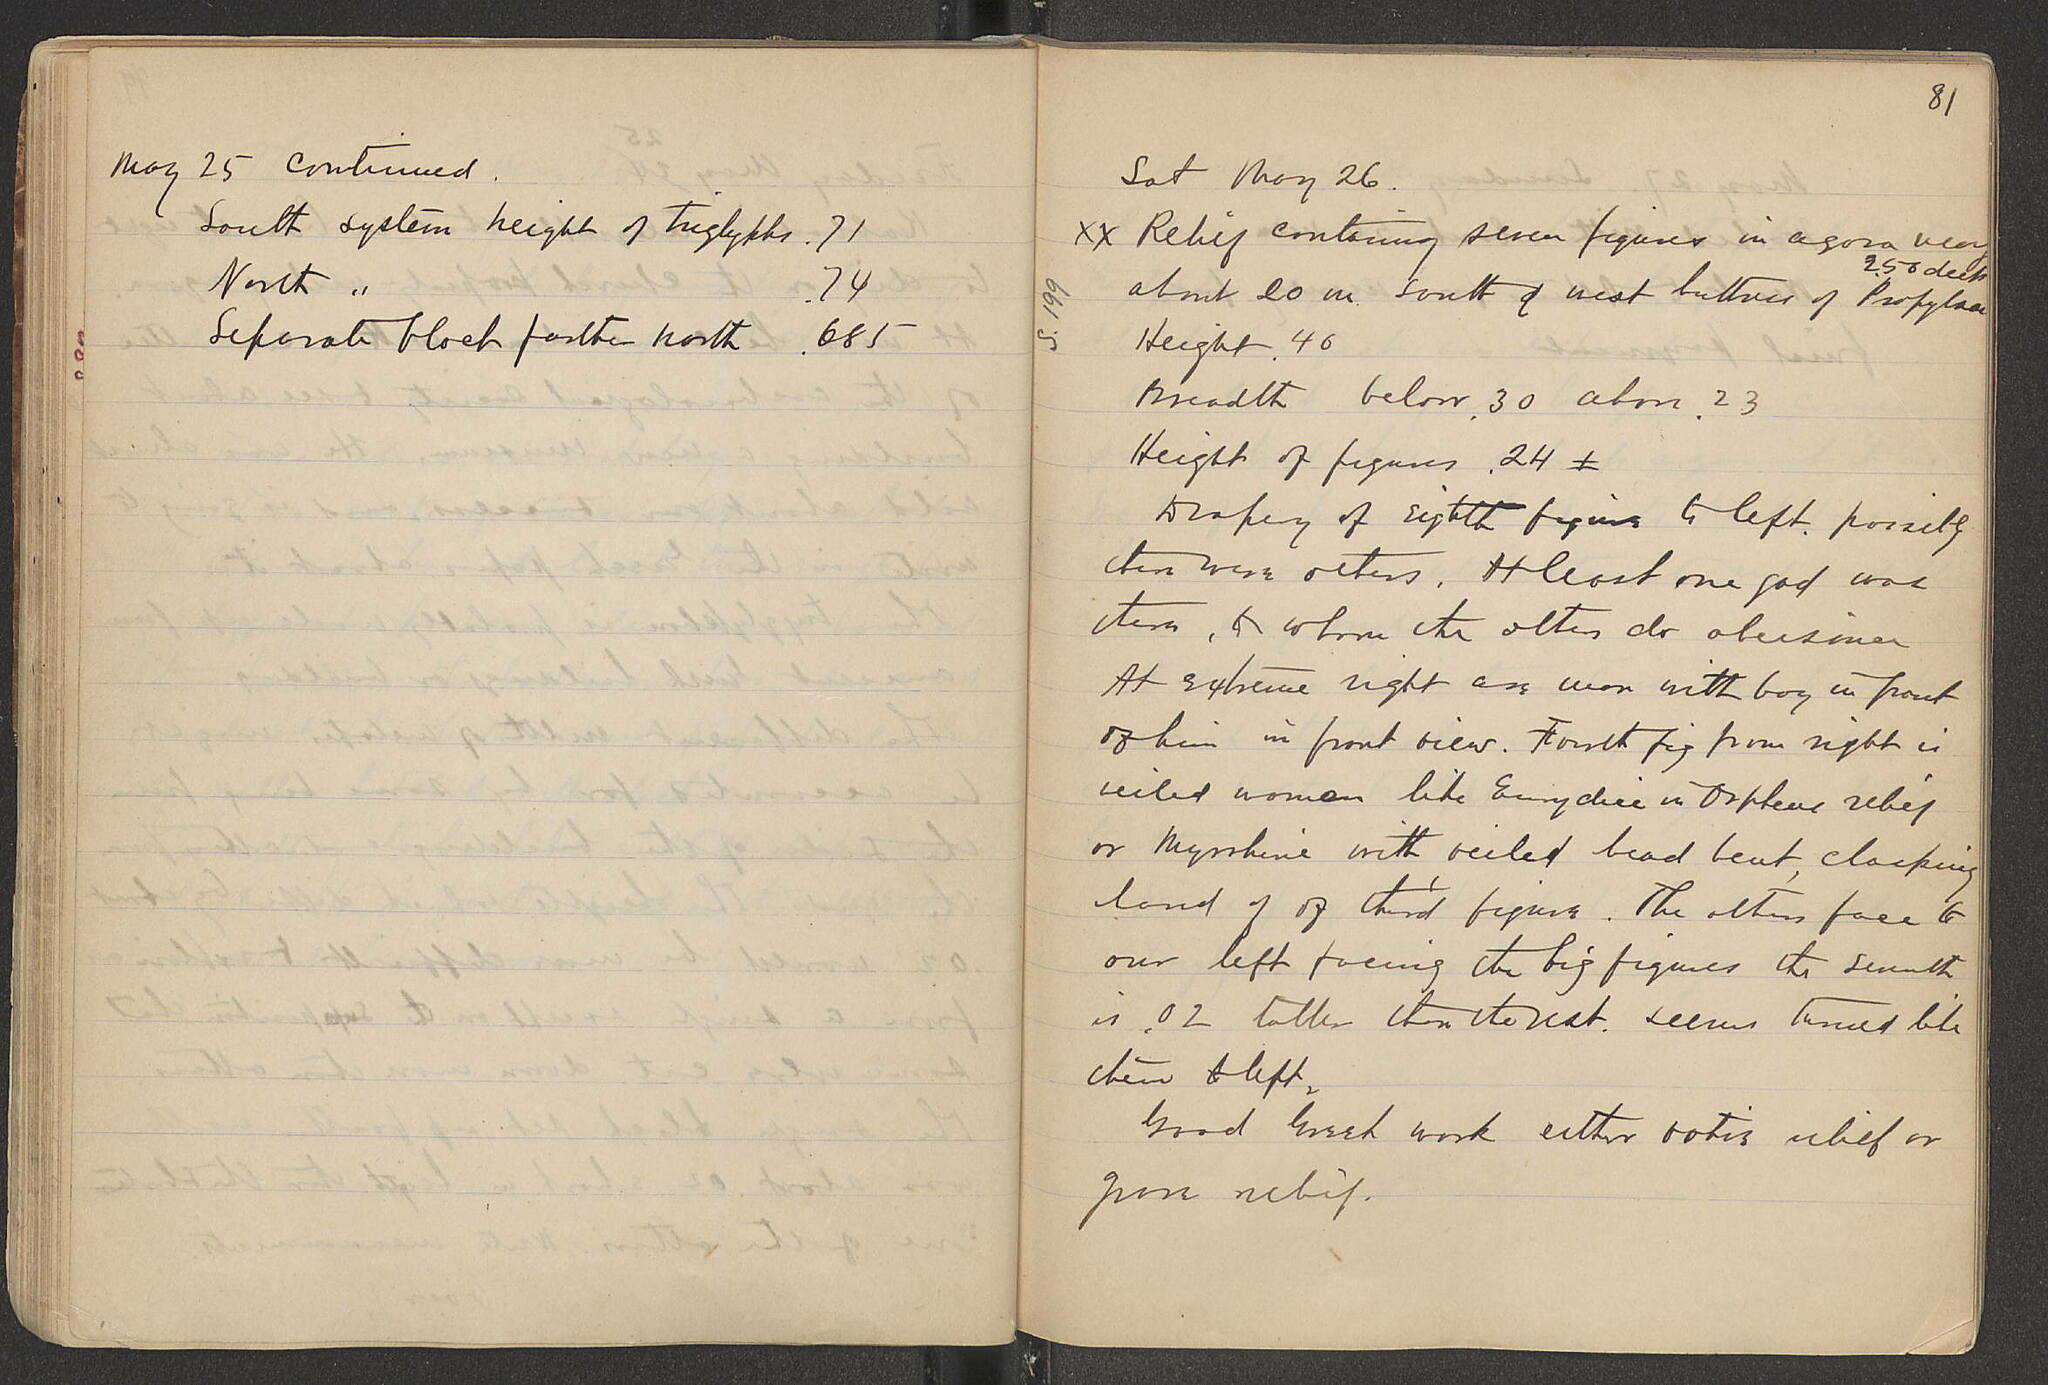 May 25 continued.
South system height of triglyphs .71
North " .74
Separate block further north .685
81
Sat May 26.
xx Relief containing seven figures in agora very
2.50 deep
about 20 m. South of west buttress of Propylaea
Height .40
Breadth below .30 above .23
Height of figures .24 ±
Drapery of eighth figure to left. possibly
there were others. At least one god was
there, to whom the others do obeisance
At extreme right are man with boy in front
of him in front view. Fourth fig from right is
veiled woman like Eurydice in Orpheus relief
or Myrrhine with veiled head bent, clasping
hand of of third figure. The others face to
our left facing the big figures the seventh
is .02 taller than the rest. seems turned like
them to left.
Good Greek work either votive relief or
grave relief.